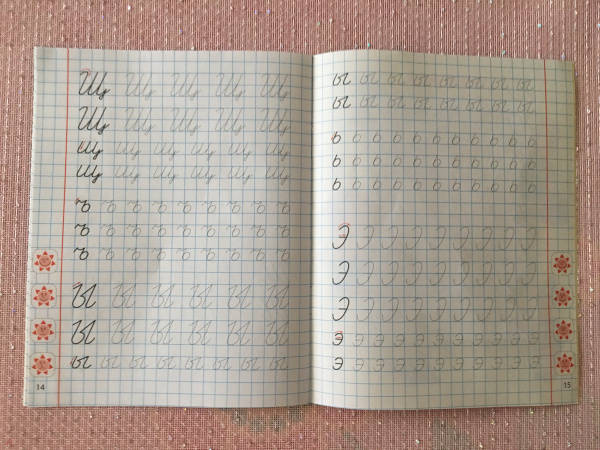 Щ Щ Щ Щ Щ
Щ Щ Щ Щ Щ
щ щ щ щ щ щ
щ щ щ щ щ щ
ъ ъ ъ ъ ъ ъ ъ ъ ъ
ъ ъ ъ ъ ъ ъ ъ ъ ъ
ъ ъ ъ ъ ъ ъ ъ ъ ъ
Ы Ы Ы Ы Ы Ы
Ы Ы Ы Ы Ы Ы
ы ы ы ы ы ы ы ы
14
ы ы ы ы ы ы ы ы
ы ы ы ы ы ы ы ы
ь ь ь ь ь ь ь ь ь ь ь
ь ь ь ь ь ь ь ь ь ь ь
ь ь ь ь ь ь ь ь ь ь ь
Э Э Э Э Э Э Э Э Э
Э Э Э Э Э Э Э Э Э
Э Э Э Э Э Э Э Э Э
э э э э э э э э э э э
э э э э э э э э э э э
15